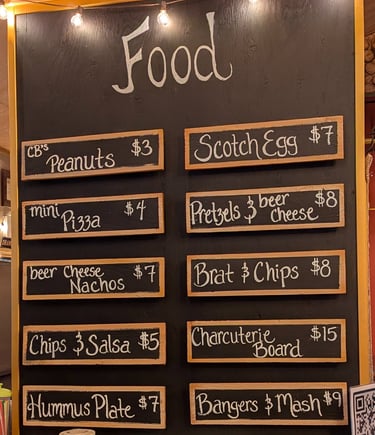 Food
CB's
Peanuts $3
mini
Pizza $4
beer Cheese
Nachos $7
Chips & Salsa $5
Hummus Plate $7
Scotch Egg $7
Pretzels & beer
cheese $8
Brat & Chips $8
Charcuterie
Board $15
Bangers & Mash $9